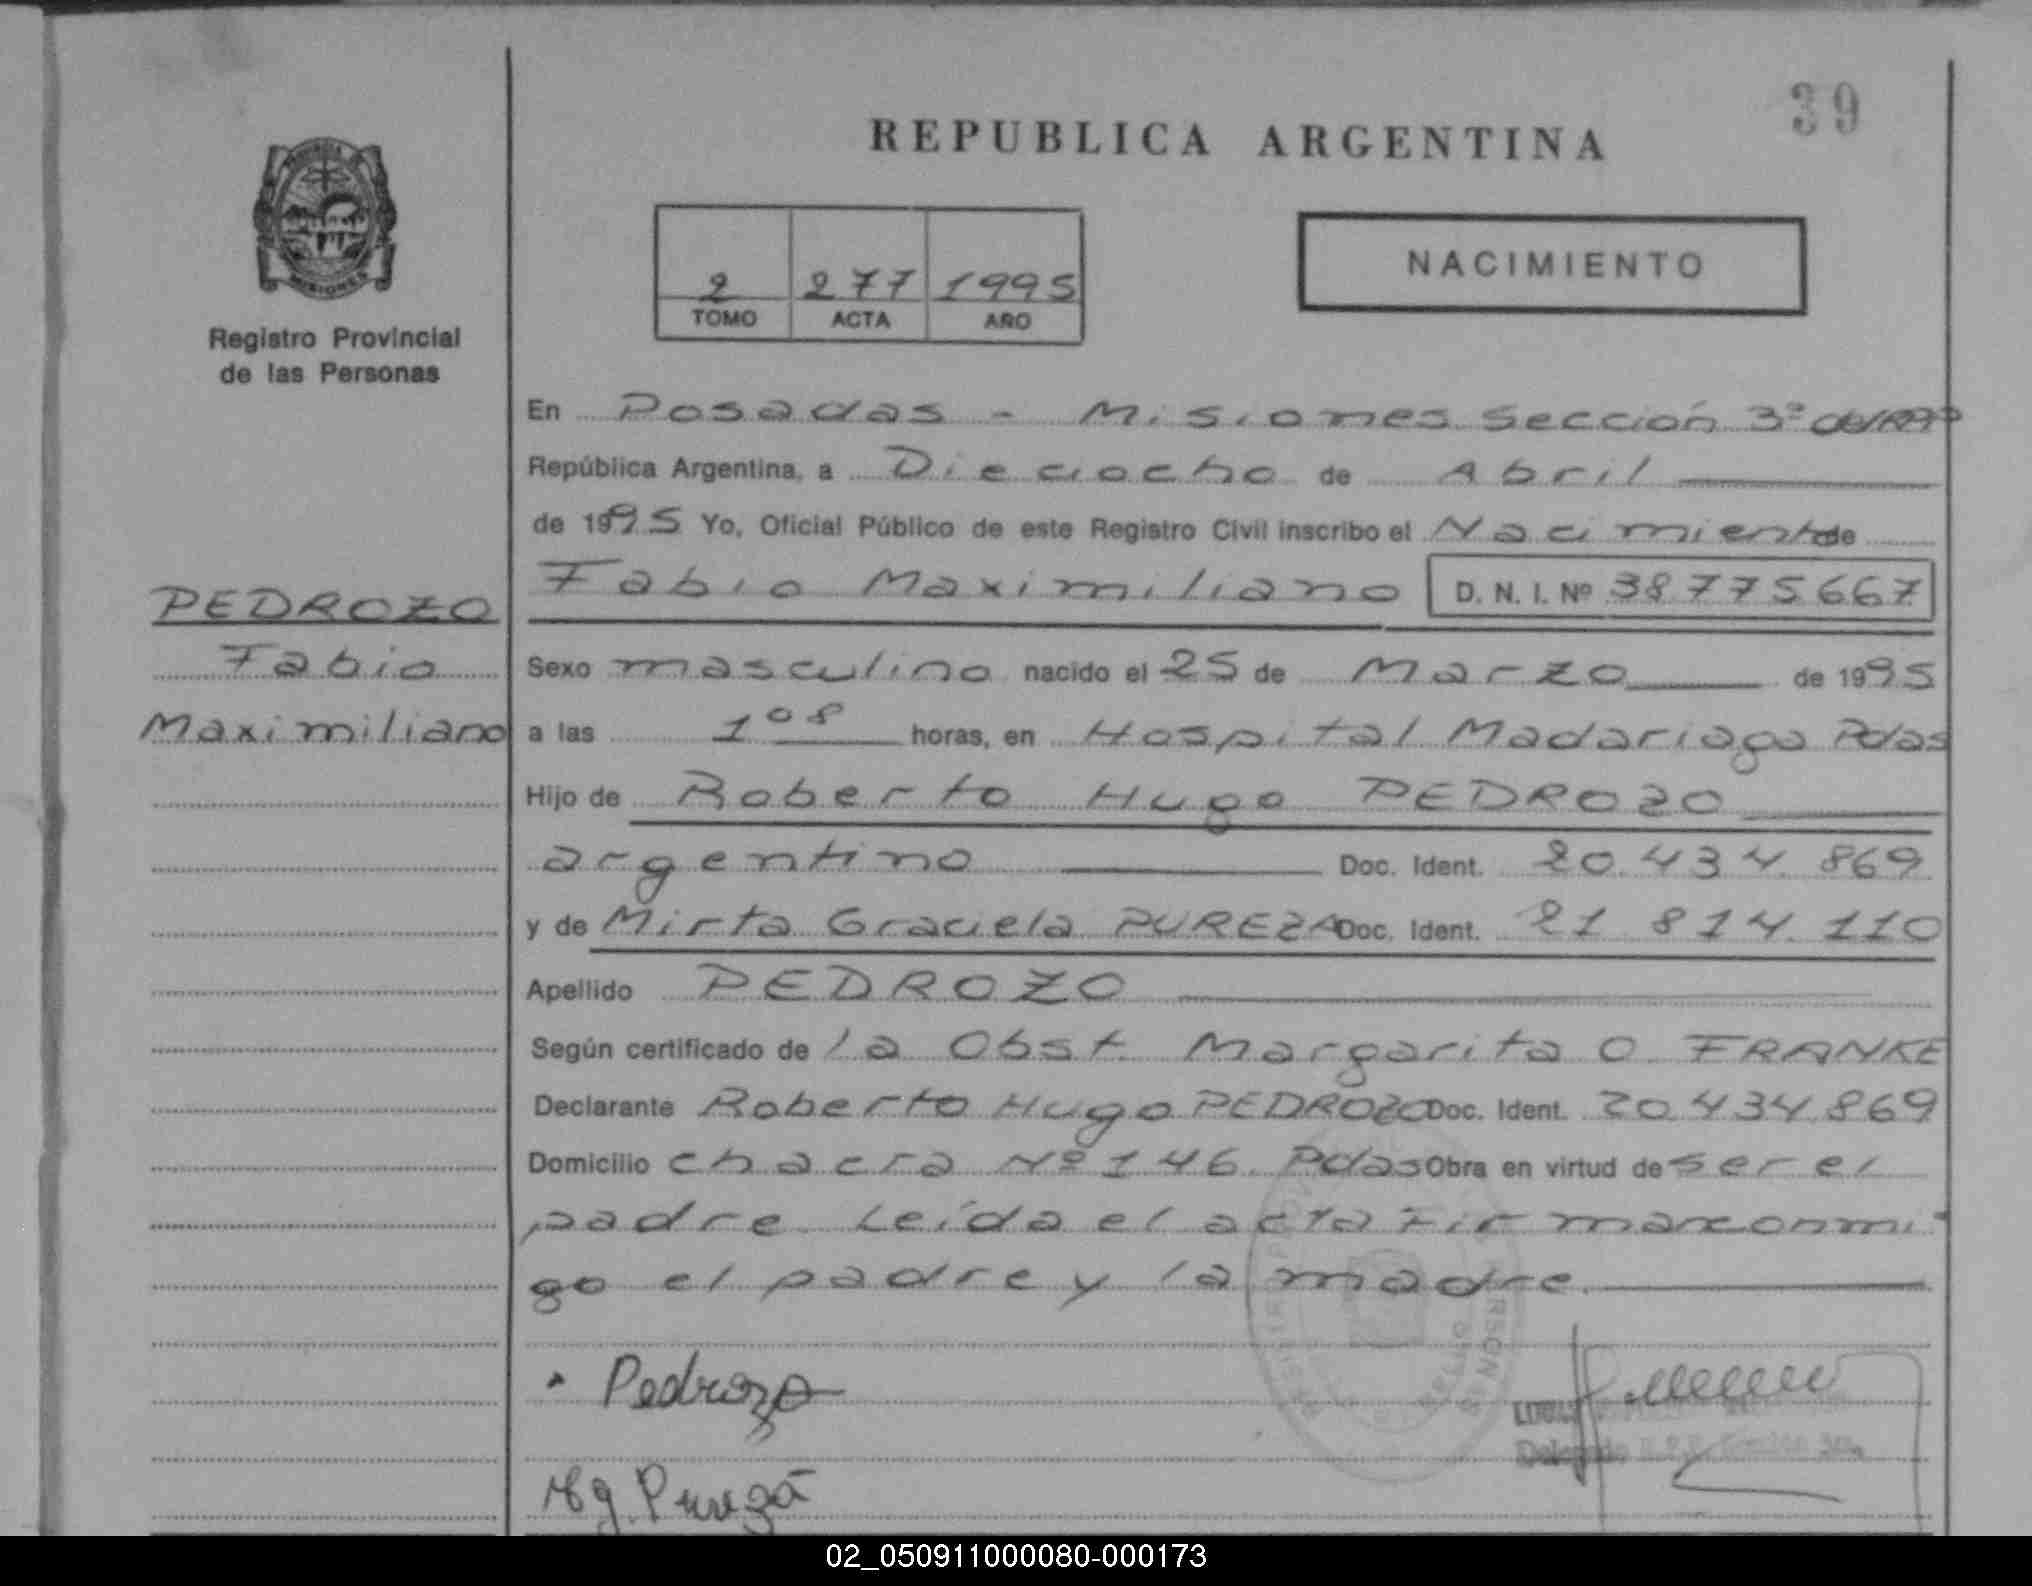 39
REPUBLICA ARGENTINA
PROVINCIA DE
MISIONES
Registro Provincial
de las Personas
2 277 1995
TOMO ACTA AÑO
NACIMIENTO
En Posadas - Misiones Sección 3º
República Argentina, a Dieciocho de Abril
de 1995 Yo, Oficial Público de este Registro Civil inscribo el Nacimiento de
Fabio Maximiliano D. N. I. Nº 38775667
PEDROZO
Fabio
Maximiliano
Sexo masculino nacido el 25 de Marzo de 1995
a las 1 08 horas, en Hospital Madariaga Pdas
Hijo de Roberto Hugo PEDROZO
argentino Doc. Ident. 20.434.869
y de Mirta Graciela PUREZA Doc. Ident. 21.814.110
Apellido PEDROZO
Según certificado de la Obst. Margarita O. FRANKE
Declarante Roberto Hugo PEDROZO Doc. Ident. 20.434.869
Domicilio chacra Nº 146. Pdas Obra en virtud de ser el
padre. Leída el acta Firman conmi-
go el padre y la madre.
Pedrozo
Mg. Pureza
Delegado
02_050911000080-000173